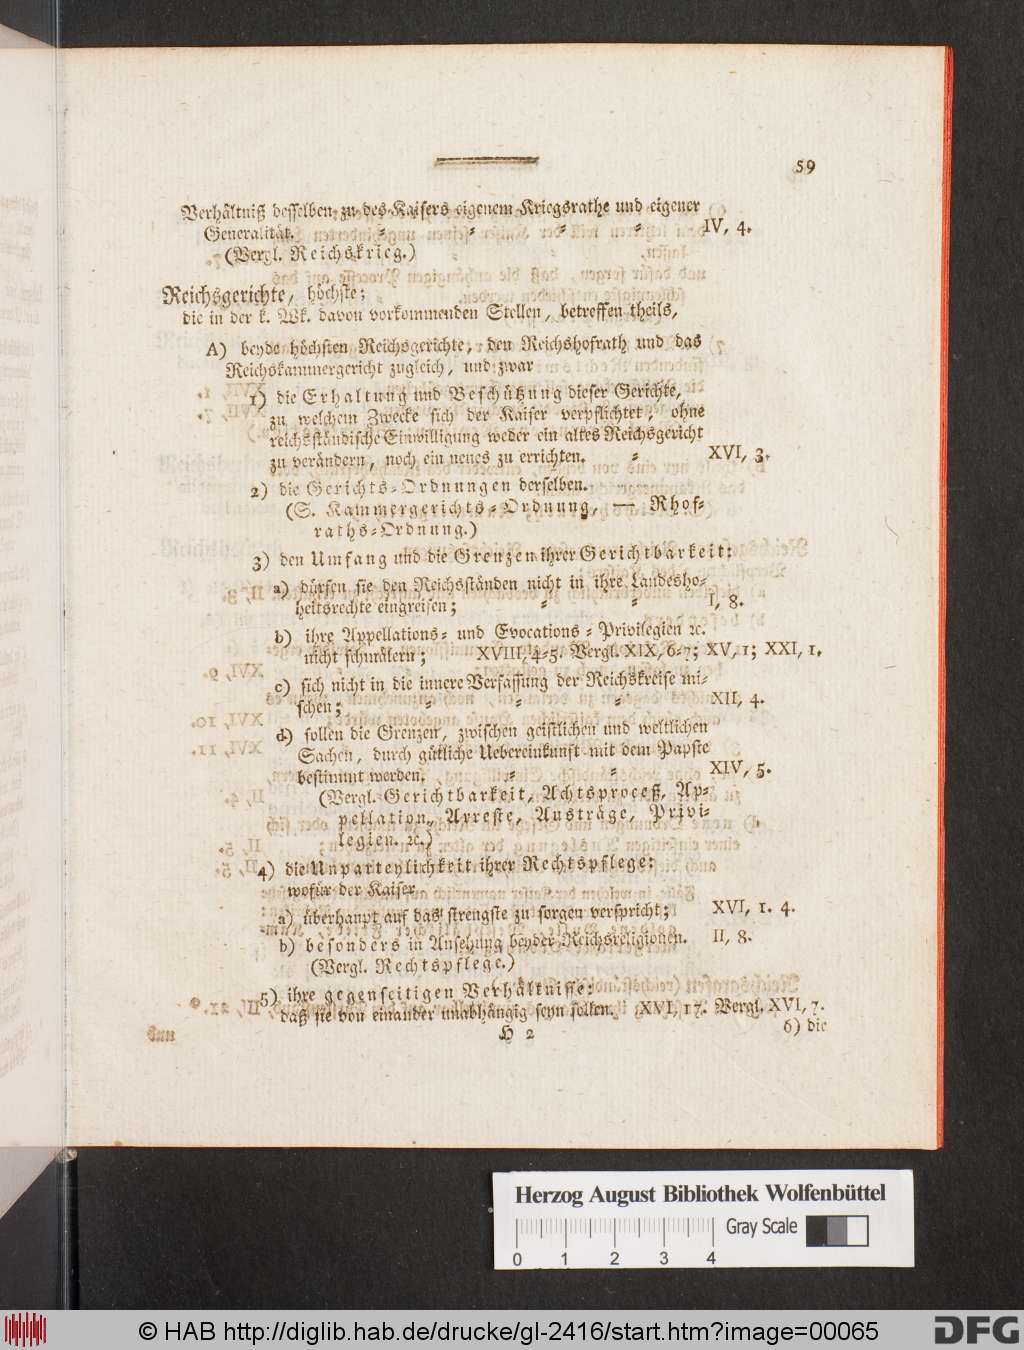 59
Verhältniß desselben zu des Kaisers eigenem Kriegsrathe und eigener
Generalität. = = = = IV, 4.
(Vergl. Reichskrieg.)
Reichsgerichte, höchste;
die in der k. Wk. davon vorkommenden Stellen, betreffen theils,
A) beyde höchsten Reichsgerichte, den Reichshofrath und das
Reichskammergericht zugleich, und zwar
1) die Erhaltung und Beschützung dieser Gerichte,
zu welchem Zwecke sich der Kaiser verpflichtet, ohne
reichsständische Einwilligung weder ein altes Reichsgericht
zu verändern, noch ein neues zu errichten. = XVI, 3.
2) die Gerichts=Ordnungen derselben.
(S. Kammergerichts=Ordnung, — Rhof=
raths=Ordnung.)
3) den Umfang und die Grenzen ihrer Gerichtbarkeit:
a) dürfen sie den Reichsständen nicht in ihre Landesho=
heitsrechte eingreifen; = = I, 8.
b) ihre Appellations= und Evocations=Privilegien ꝛc.
nicht schmälern; XVIII, 4=5. Vergl. XIX, 6=7; XV, 1; XXI, 1.
c) sich nicht in die innere Verfassung der Reichskreise mi=
schen; = = = XII, 4.
d) sollen die Grenzen, zwischen geistlichen und weltlichen
Sachen, durch gütliche Uebereinkunft mit dem Papste
bestimmt werden. = = XIV, 5.
(Vergl. Gerichtbarkeit, Achtsproceß, Ap=
pellation, Arreste, Austräge, Privi=
legien. ꝛc.)
4) die Unparteylichkeit ihrer Rechtspflege:
wofür der Kaiser
a) überhaupt auf das strengste zu sorgen verspricht; XVI, 1. 4.
b) besonders in Ansehung beyder Reichsreligionen. II, 8.
(Vergl. Rechtspflege.)
5) ihre gegenseitigen Verhältnisse:
daß sie von einander unabhängig seyn sollen. XVI, 17. Vergl. XVI, 7.
H 2
6) die
Herzog August Bibliothek Wolfenbüttel
Gray Scale
0 1 2 3 4
© HAB http://diglib.hab.de/drucke/gl-2416/start.htm?image=00065
DFG